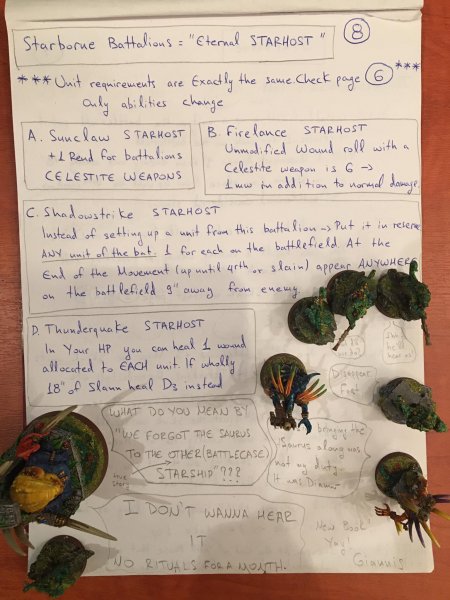 Starborne Battalions = "Eternal STARHOST"
8
*** Unit requirements are Exactly the same. Check page 6 ***
Only abilities change
A. Sunclaw STARHOST
+1 Rend for battalions
CELESTITE WEAPONS
B. Firelance STARHOST
Unmodified Wound roll with a
Celestite weapon is 6 →
1 mw in addition to normal damage.
C. Shadowstrike STARHOST
Instead of setting up a unit from this battalion → Put it in reserve
ANY unit of the bat. 1 for each on the battlefield. At the
End of the Movement (up until 4rth or slain) appear ANYWHERE
on the battlefield 9" away from enemy
D. Thunderquake STARHOST
In Your HP you can heal 1 wound
allocated to EACH unit. If wholly
18" of Slann heal D3 instead
Disappear
Fast
WHAT DO YOU MEAN BY
"WE FORGOT THE SAURUS
TO THE OTHER (BATTLECASE)
STARSHIP"???
true
story
bringing the
Saurus along was
not my duty.
It was Dinner
I DON'T WANNA HEAR
IT
NO RITUALS FOR A MONTH.
New Book!
Yay!
Giannis